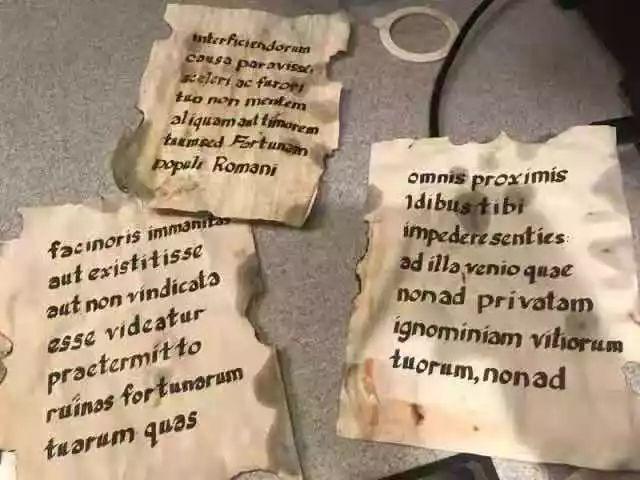 interficiendorum
causa paravisse,
sceleri ac furori
tuo non mentem
aliquam aut timorem
tuum sed Fortunam
populi Romani
facinoris immanitas
aut existitisse
aut non vindicata
esse videatur
praetermitto
ruinas fortunarum
tuarum quas
omnis proximis
Idibus tibi
impedere senties:
ad illa venio quae
non ad privatam
ignominiam vitiorum
tuorum, non ad